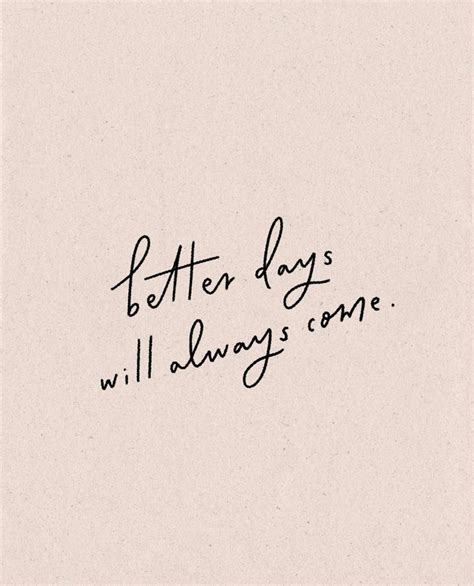 better days
will always come.